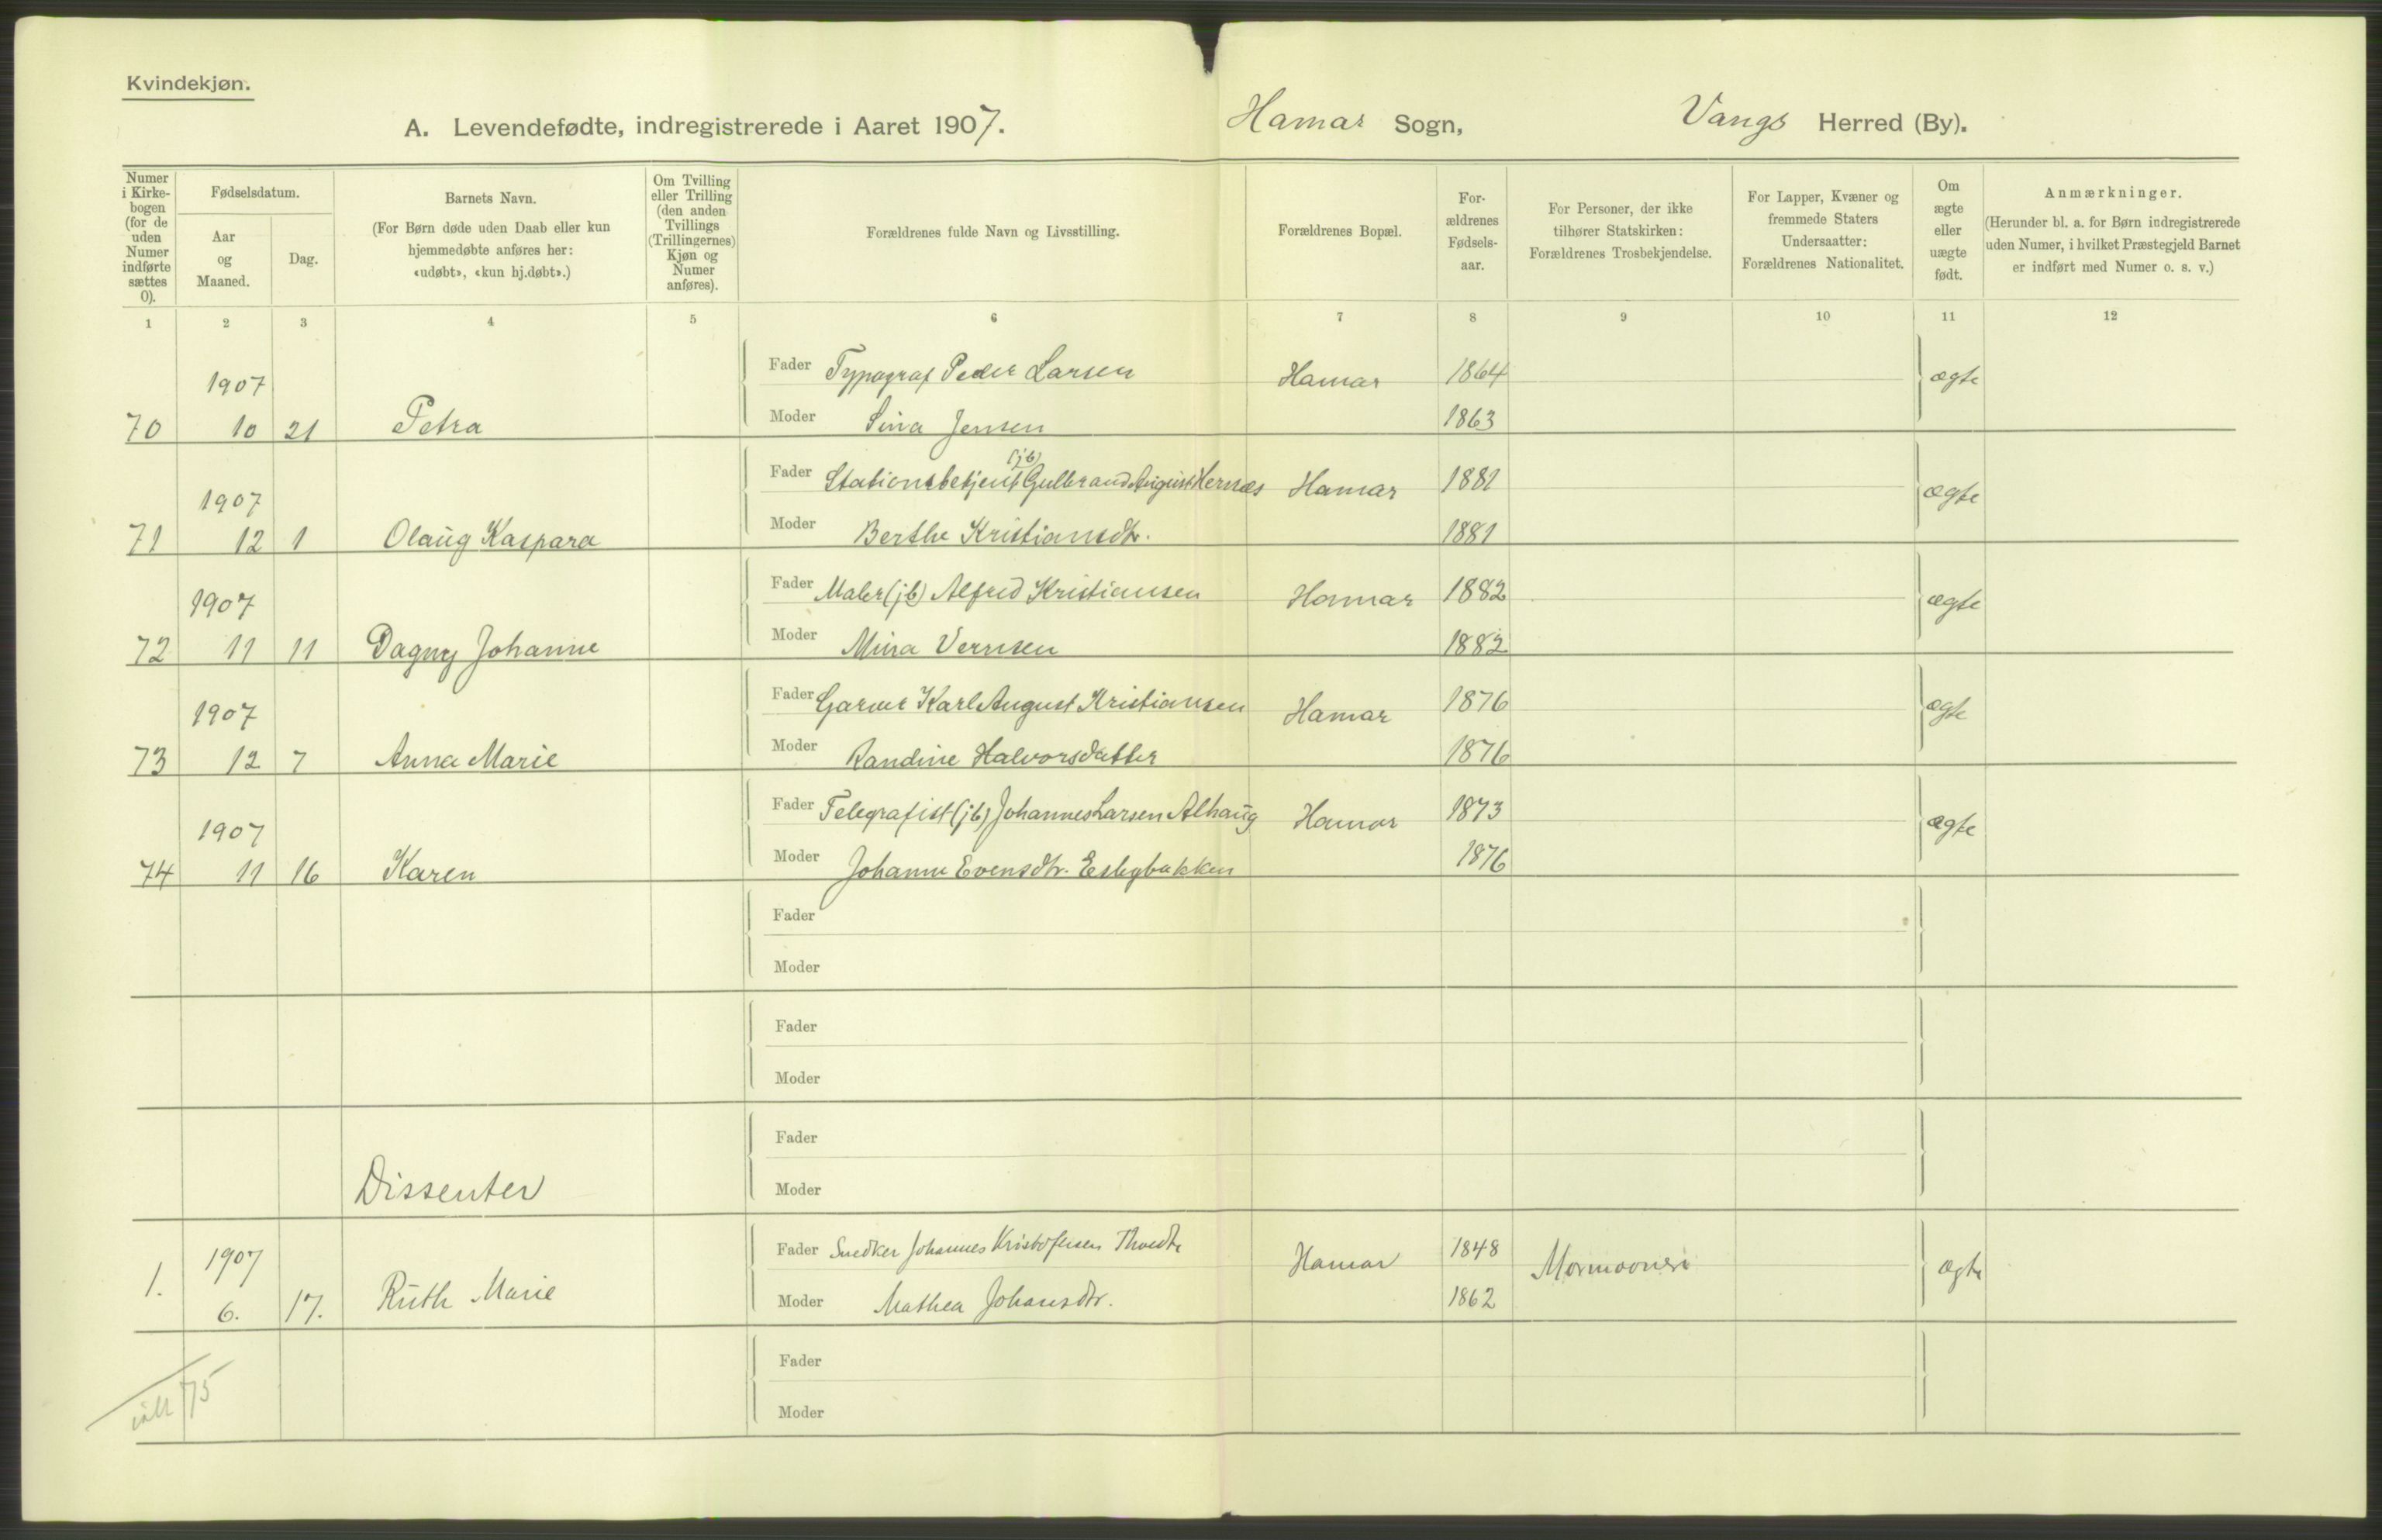 Kvindekjøn.
A. Levendefødte, indregistrerede i Aaret 1907. Hamar Sogn, Vangs Herred (By).
Numer i Kirkebogen (for de uden Numer indførte sættes 0).
Fødselsdatum.
Aar og Maaned.
Dag.
Barnets Navn.
(For Børn døde uden Daab eller kun hjemmedøbte anføres her: «udøbt», «kun hj.døbt».)
Om Tvilling eller Trilling (den anden Tvillings (Trillingernes) Kjøn og Numer anføres).
Forældrenes fulde Navn og Livsstilling.
Forældrenes Bopæl.
Forældrenes Fødselsaar.
For Personer, der ikke tilhører Statskirken: Forældrenes Trosbekjendelse.
For Lapper, Kvæner og fremmede Staters Undersaatter: Forældrenes Nationalitet.
Om ægte eller uægte født.
Anmærkninger.
(Herunder bl. a. for Børn indregistrerede uden Numer, i hvilket Præstegjeld Barnet er indført med Numer o. s. v.)
1 2 3 4 5 6 7 8 9 10 11 12
1907 Fader Typograf Peder Larsen Hamar 1864 ægte
70 10 21 Petra Moder Sina Jensen 1863
1907 Fader Stationsbetjent (jb) Gulbrand August Hernæs Hamar 1881 ægte
71 12 1 Olaug Kaspara Moder Berthe Kristiansdtr. 1881
1907 Fader Maler (jb) Alfred Kristiansen Hamar 1882 ægte
72 11 11 Dagny Johanne Moder Mina Vernsen 1882
1907 Fader Garver Karl August Kristiansen Hamar 1876 ægte
73 12 7 Anna Marie Moder Randine Halvorsdatter 1876
1907 Fader Telegrafist (jb) Johannes Larsen Alhaug Hamar 1873 ægte
74 11 16 Karen Moder Johanne Evensdtr. 1876
Fader
Moder
Fader
Moder
Fader
Dissenter Moder
1. 1907 Fader Snedker Johannes Kristofersen Hamar 1848 Mormoner ægte
6. 17. Ruth Marie Moder Mathea Johansdtr. 1862
Fader
ialt 75
Moder